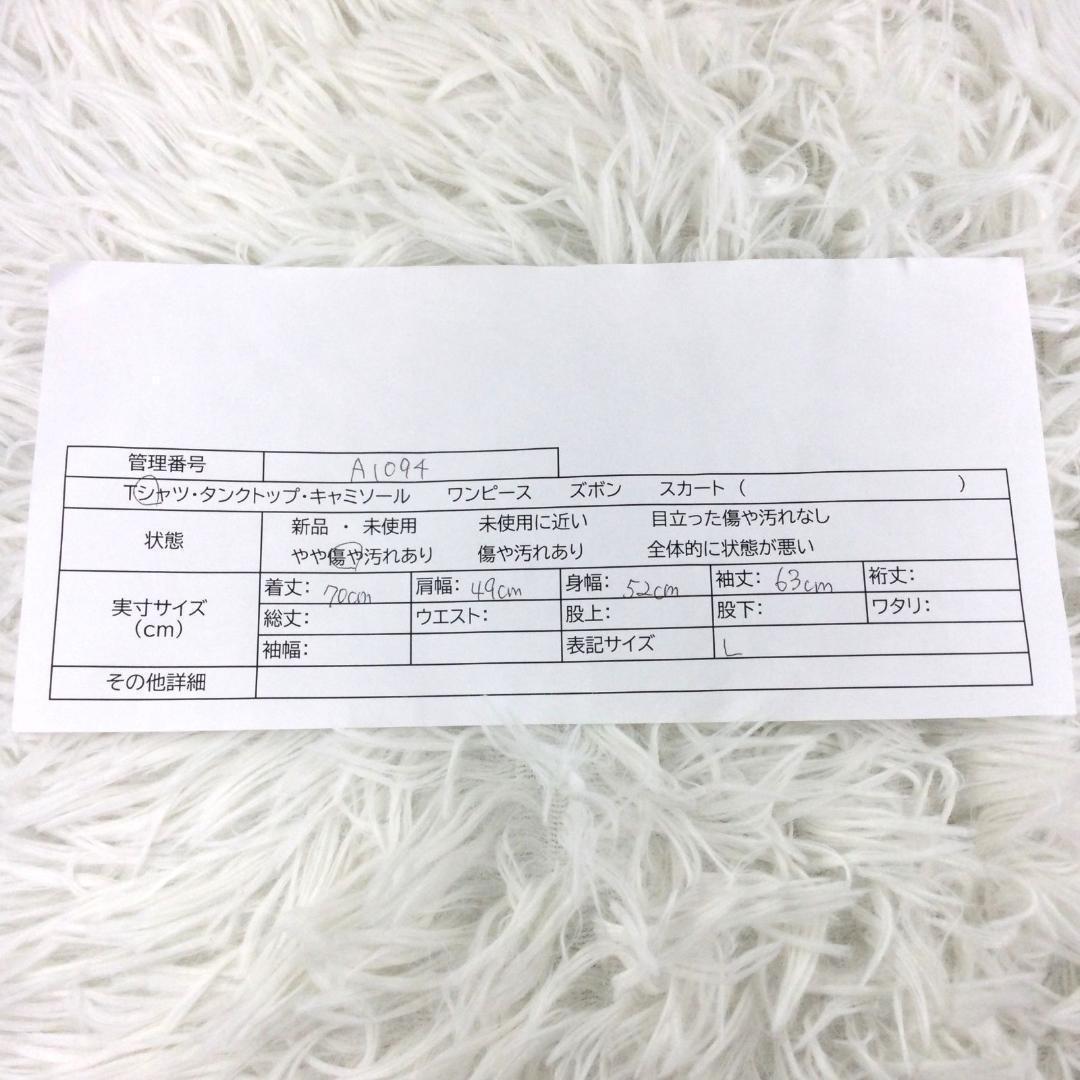 管理番号 A1094
Tシャツ・タンクトップ・キャミソール ワンピース ズボン スカート ( )
状態 新品 ・ 未使用 未使用に近い 目立った傷や汚れなし
やや傷や汚れあり 傷や汚れあり 全体的に状態が悪い
実寸サイズ (cm) 着丈: 70cm 肩幅: 49cm 身幅: 52cm 袖丈: 63cm 裄丈:
総丈: ウエスト: 股上: 股下: ワタリ:
袖幅: 表記サイズ L
その他詳細